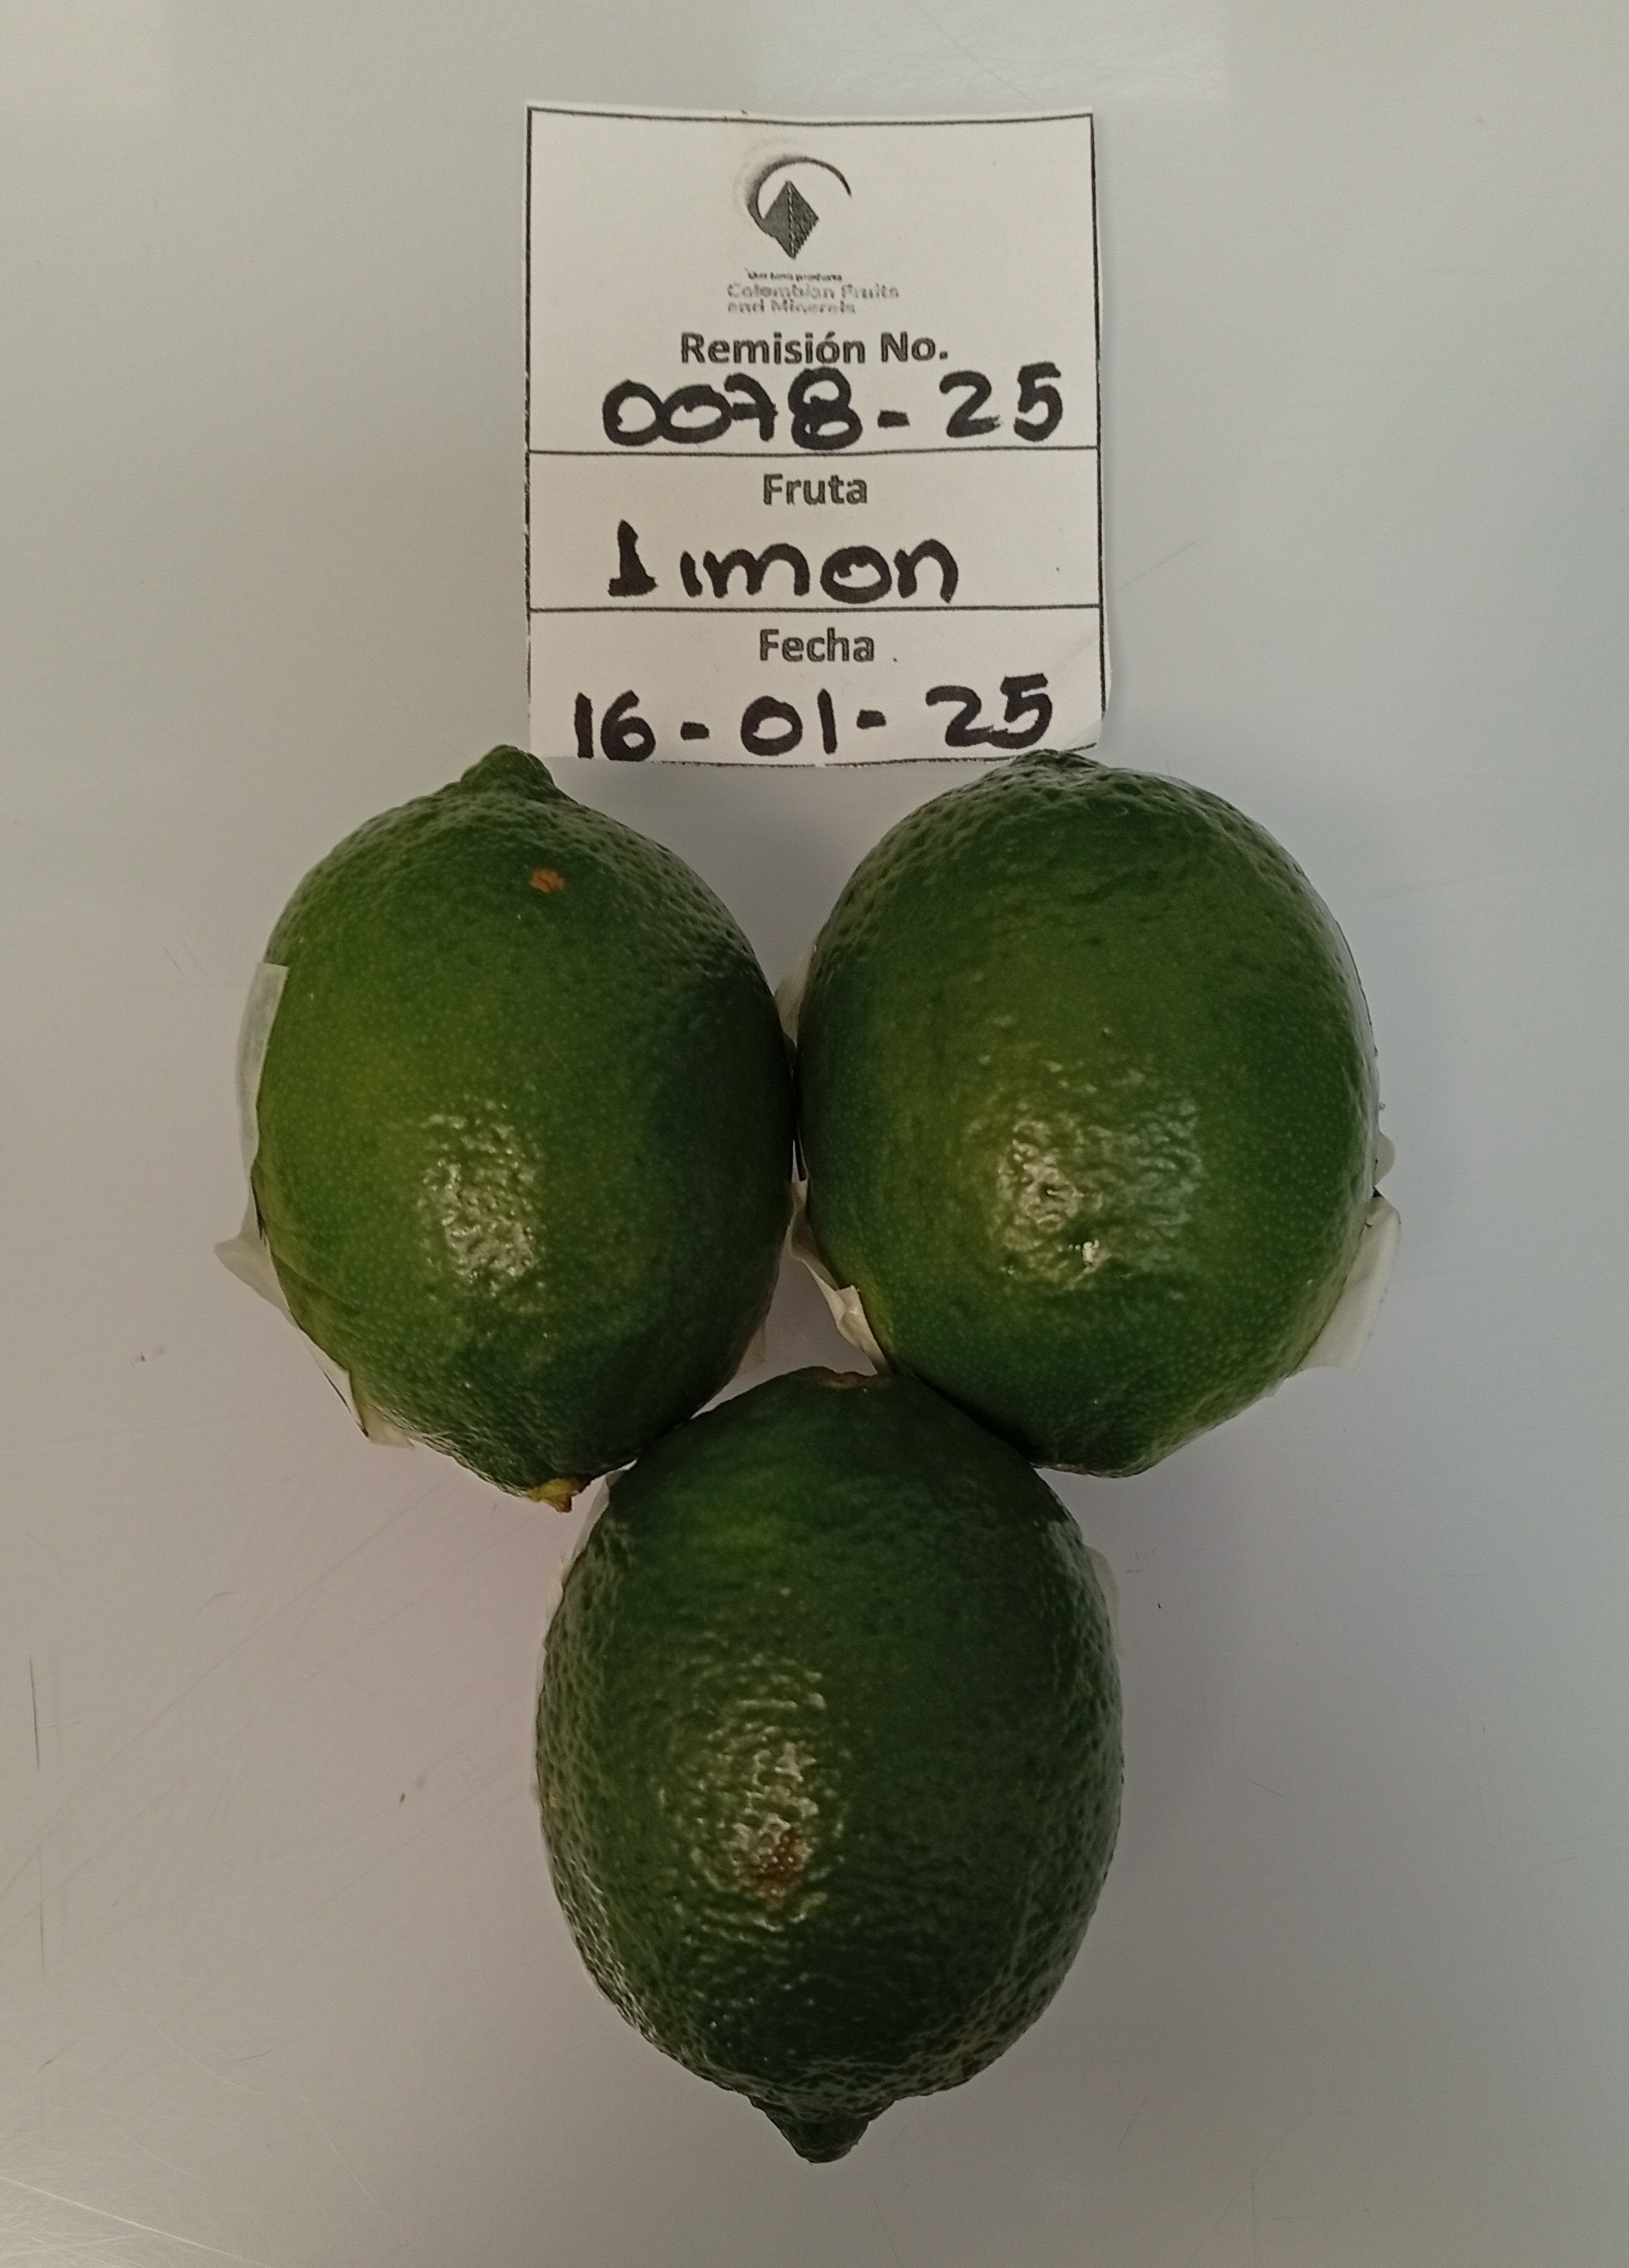 Colombian Fruits
and Minerals
Remisión No.
0078-25
Fruta
Limon
Fecha
16-01-25